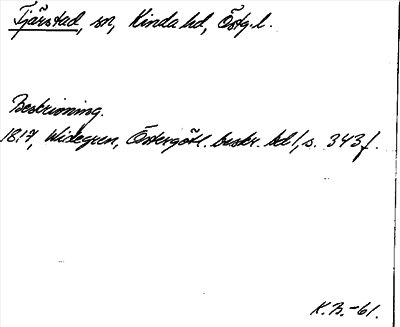 Tjärstad, sn, Kinda hd, Östg.l.
Beskrivning.
1817, Widegren, Östergötl. beskr. bd 1, s. 343 f.
K.B.-61.